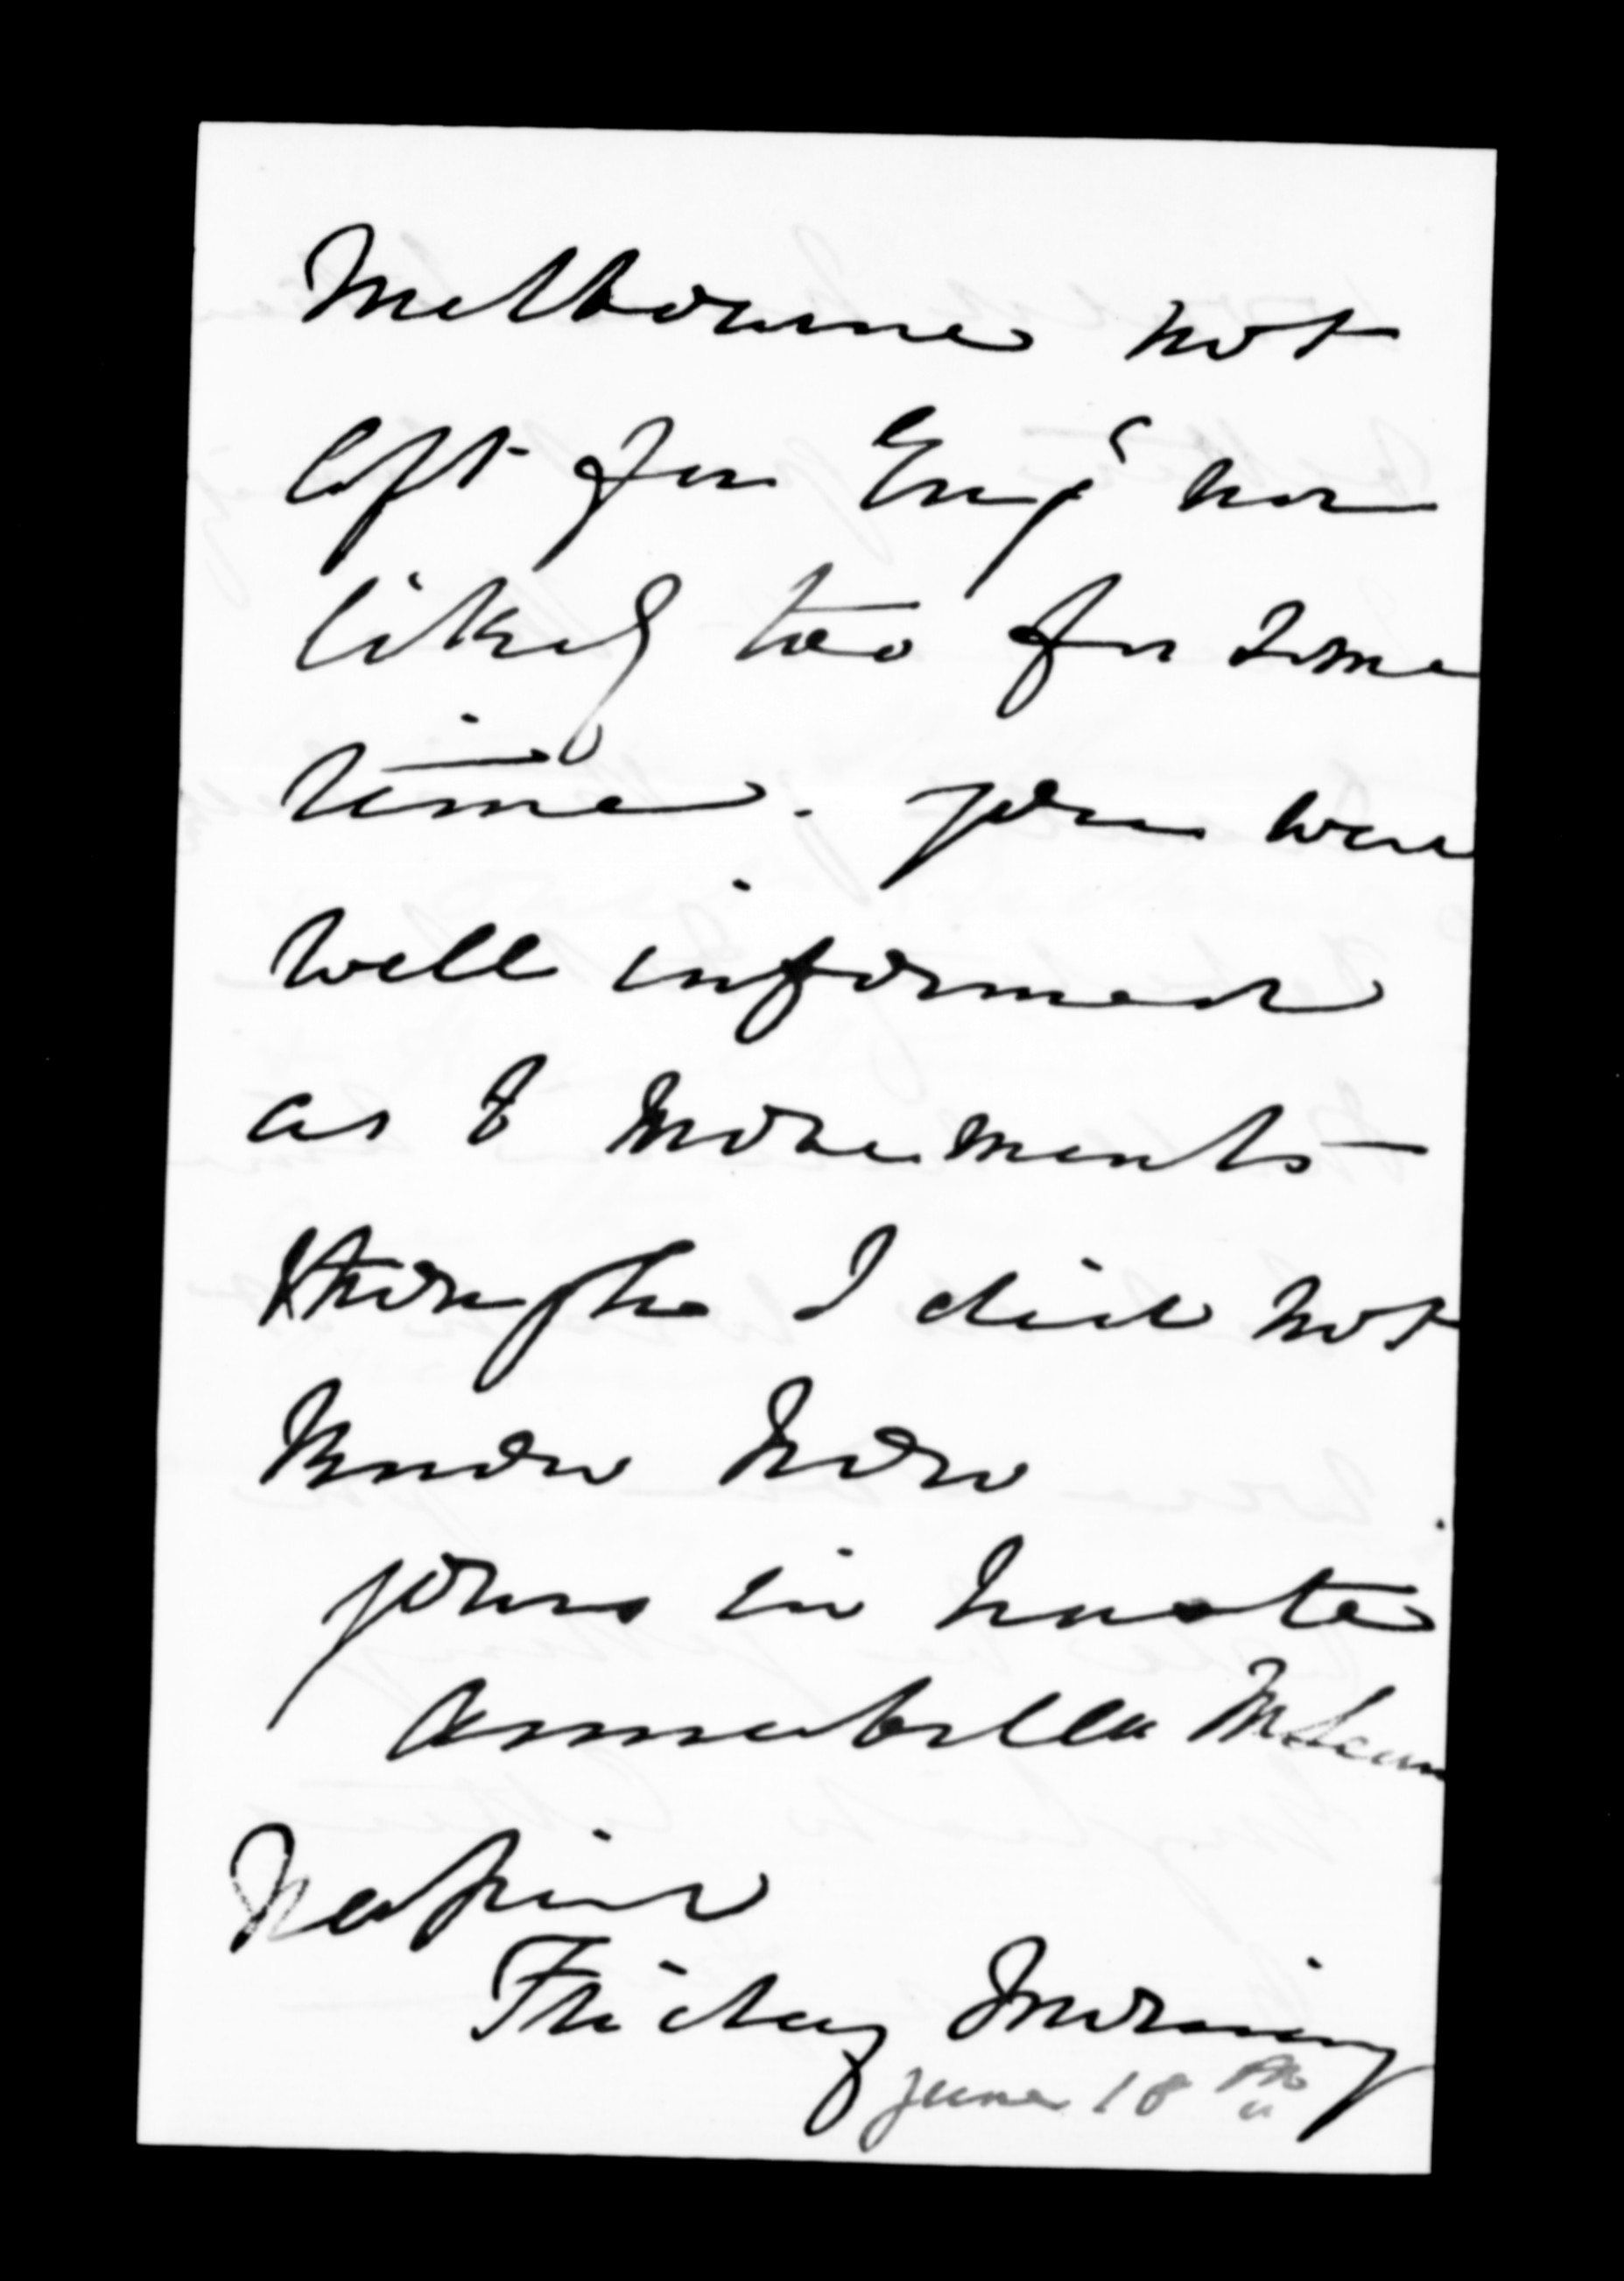 Melbourne not
left for Eng<sup>d</sup> nor
likely too for some
time. you were
well informed
as to movements
though I did not
know how
yours in haste
Annabella McLean
Napier
Friday Morning
June 18<sup>th</sup>